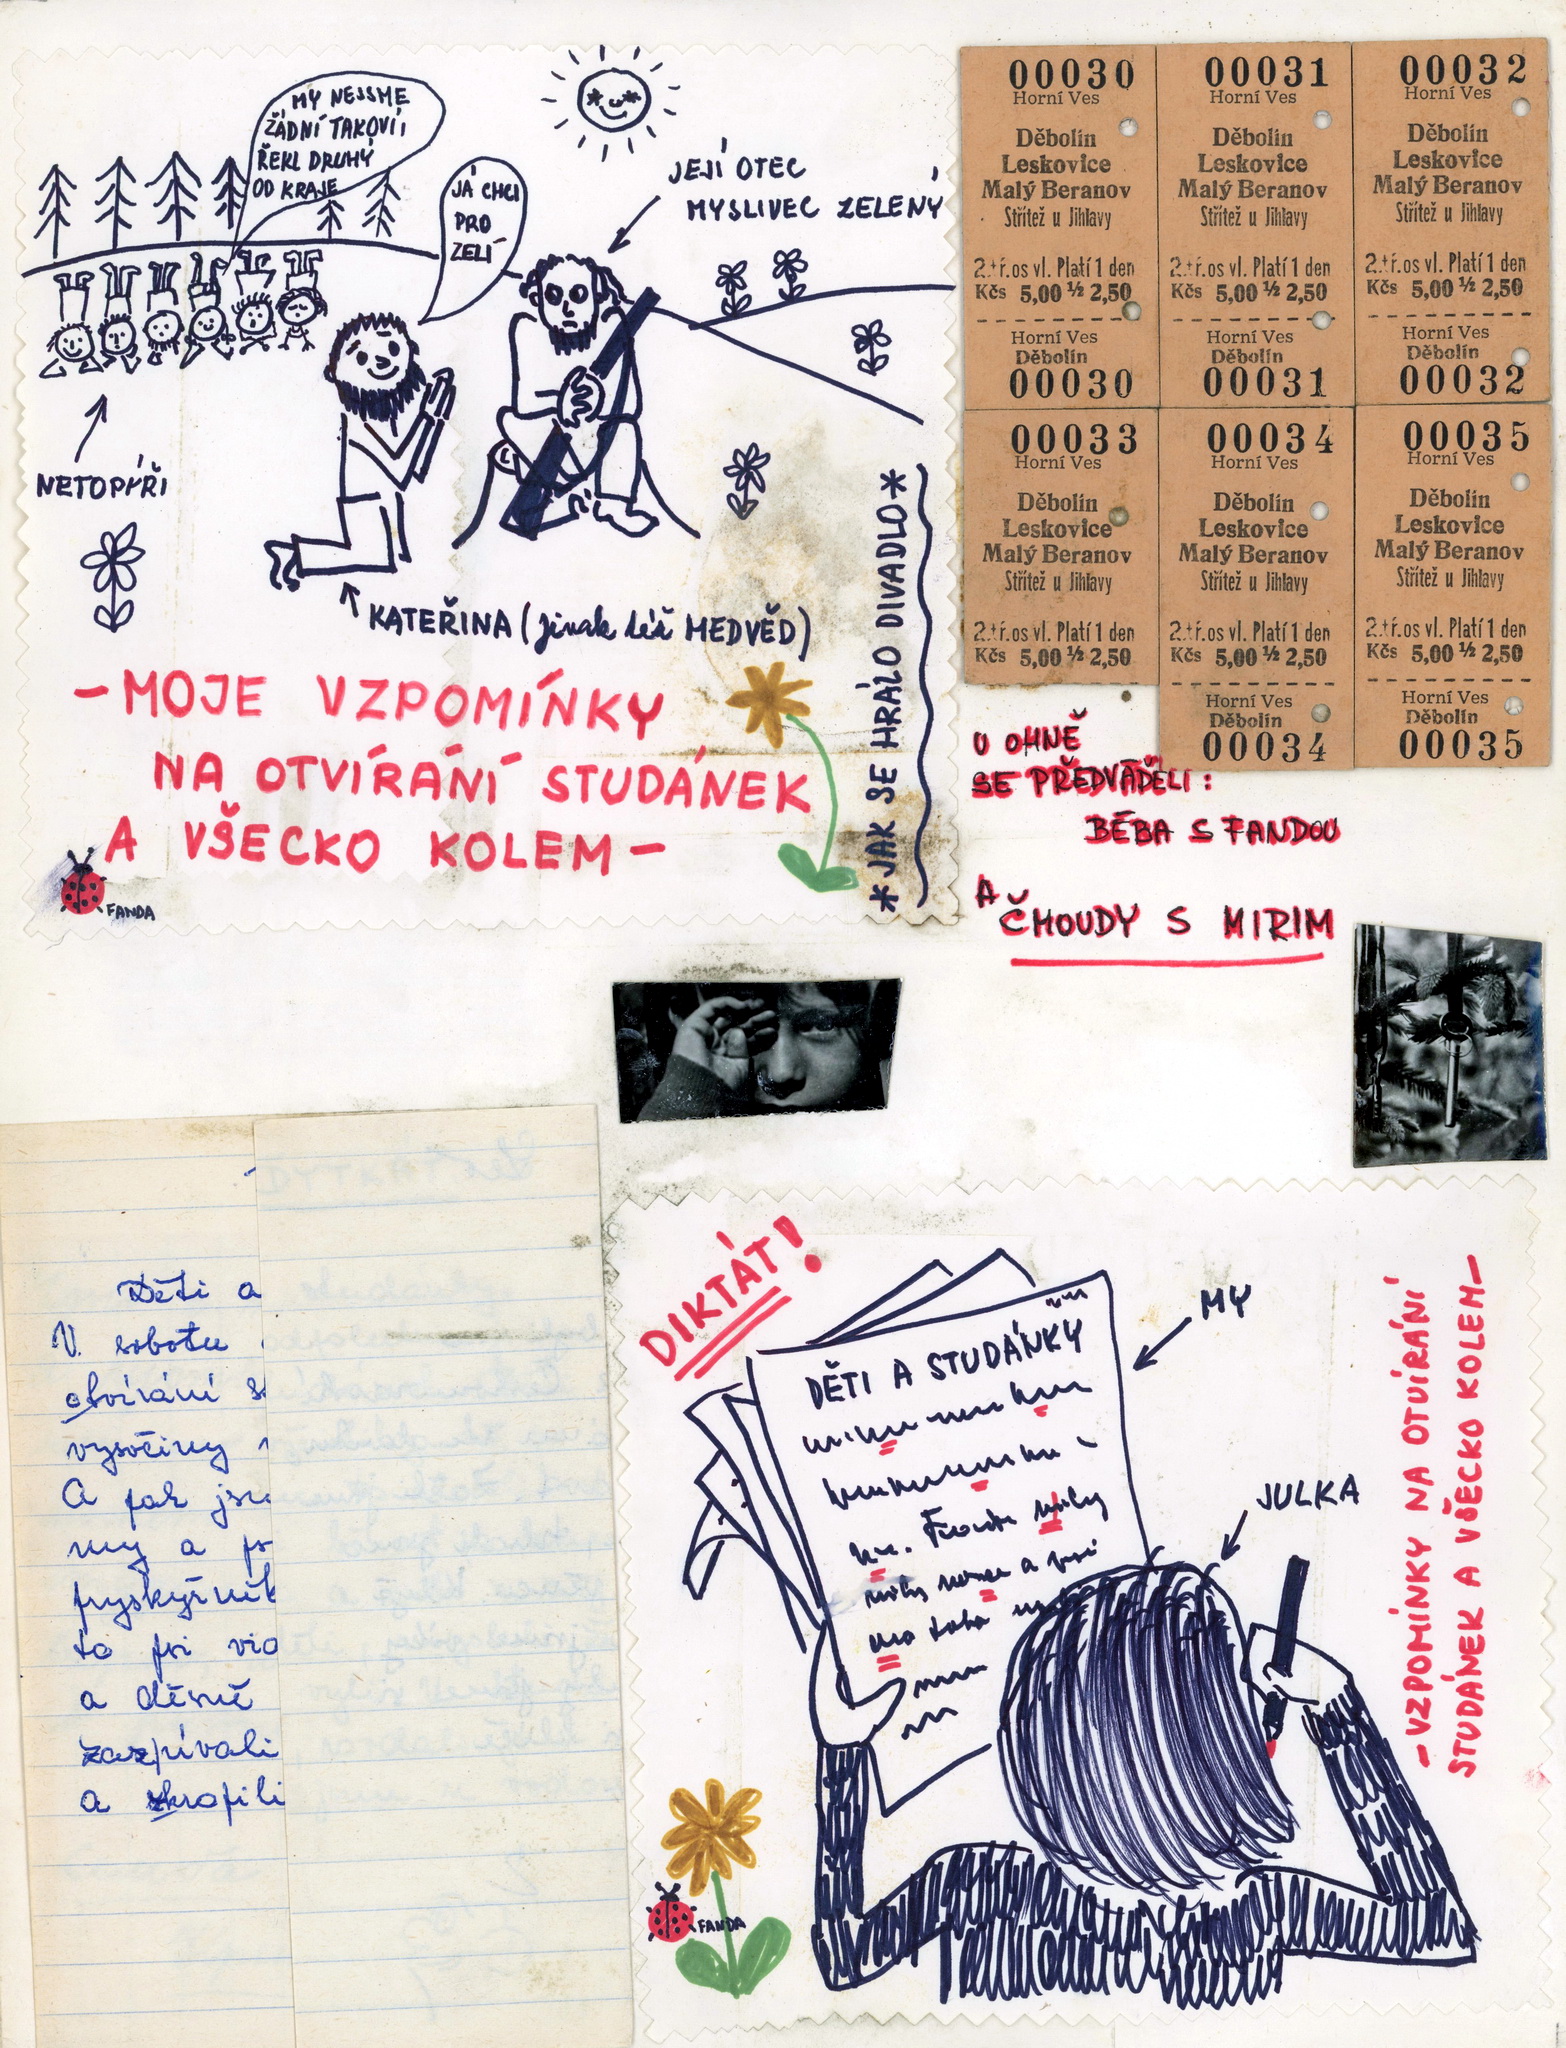 MY NEJSME
ŽÁDNÍ TAKOVÍ,
ŘEKL DRUHÝ
OD KRAJE
JÁ CHCI
PRO
ZELÍ
JEJÍ OTEC
MYSLIVEC ZELENÝ
NETOPÝŘI
KATEŘINA (jinak též MEDVĚD)
* JAK SE HRÁLO DIVADLO *
- MOJE VZPOMÍNKY
NA OTVÍRÁNÍ STUDÁNEK
A VŠECKO KOLEM -
FANDA
00030
Horní Ves
Děbolín
Leskovice
Malý Beranov
Střítež u Jihlavy
2.tř.os vl. Platí 1 den
Kčs 5,00 ½ 2,50
Horní Ves
Děbolín
00030
00031
Horní Ves
Děbolín
Leskovice
Malý Beranov
Střítež u Jihlavy
2.tř.os vl. Platí 1 den
Kčs 5,00 ½ 2,50
Horní Ves
Děbolín
00031
00032
Horní Ves
Děbolín
Leskovice
Malý Beranov
Střítež u Jihlavy
2.tř.os vl. Platí 1 den
Kčs 5,00 ½ 2,50
Horní Ves
Děbolín
00032
00033
Horní Ves
Děbolín
Leskovice
Malý Beranov
Střítež u Jihlavy
2.tř.os vl. Platí 1 den
Kčs 5,00 ½ 2,50
00034
Horní Ves
Děbolín
Leskovice
Malý Beranov
Střítež u Jihlavy
2.tř.os vl. Platí 1 den
Kčs 5,00 ½ 2,50
Horní Ves
Děbolín
00034
00035
Horní Ves
Děbolín
Leskovice
Malý Beranov
Střítež u Jihlavy
2.tř.os vl. Platí 1 den
Kčs 5,00 ½ 2,50
Horní Ves
Děbolín
00035
U OHNĚ
SE PŘEDVÁDĚLI:
BÉBA S FANDOU
A
ČMOUDY S MIRIM
Děti a
V sobotu
otvírání s
vysočiny
A pak jsm
my a p
pryskyřník
to pri vio
a děsně
zazpívali
a skropili
DIKTÁT!
DĚTI A STUDÁNKY
MY
JULKA
- VZPOMÍNKY NA OTVÍRÁNÍ
STUDÁNEK A VŠECKO KOLEM -
FANDA